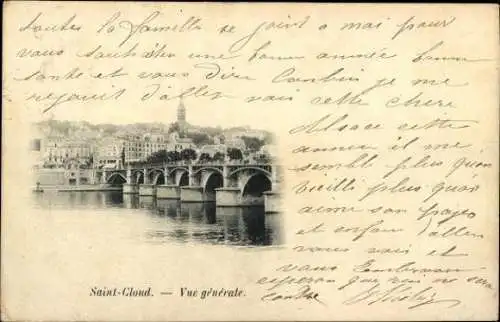 toutes la famille se joint a moi pour
vous souhaiter une bonne année bonne
santé et vous dire combien je me
rejouit d'aller voir cette chere
Alsace cette
année il me
semble plus qu'on
vieilli plus qu'on
aime son pays
et enfin d'aller
vous voir et
vous embrasser
espérons que nous ne sera
Saint-Cloud. — Vue générale.